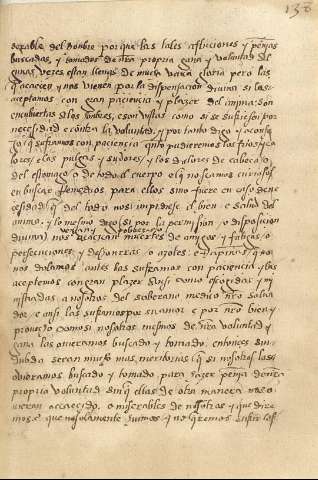 138
del hombre por que las tales aflictiones y penas
buscadas, y tomadas de nra propria gana y voluntad al
gunas vezes estan llenas de mucha vana gloria pero las
q acaecen, y nos vienen por la dispensacion divina si las
aceptamos con gran paciencia y plazer del anima son
encubiertas a los hombres, y son vistas como si se sufriesen por
necesidad e contra la voluntad, y por tanto digo y aconse
jo q suframos con paciencia quanto pudieremos los frios y ca
lores, e las pulgas y sudores, y los dolores de cabeça o
del estomago o de todo el cuerpo e q no seamos curiosos
en buscar Remedios para ellos sino fuere en caso de ne
cesidad q del todo nos impidiese el bien e salud del
anima, y lo mesmo digo si por la permision o disposicion
vernan y pobreza
divina nos muertes de amigos y
persecuciones, y desonrras o açotes e Rapiñas, q no
nos dolamos antes las suframos con paciencia y las
aceptemos con gran plazer ansi como escogidas y mi
nistradas a nosotros del soberano medico nro salva
dor e ansi las suframos por su amor e por nro bien y
provecho como si nosotros mesmos de nra voluntad y
gana los ovieramos buscado y tomado, entonces sin
dubda seran muy mas meritorias q si nosotros las
ovieramos buscado y tomado para hazer penª de nra
propria voluntad sin q ellas de otra manera nos o
vieran acaecido, o miserables de nosotros y que dire
mos e que no solamente huimos y no queremos sufrir las